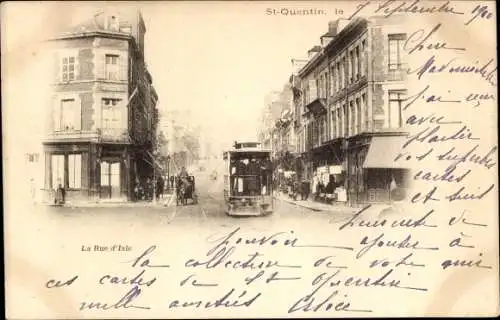 St-Quentin, le 7 Septembre 1900
Chère
Mademoiselle
j'ai reçu
avec
plaisir
vos superbes
cartes
et suis
heureuse de
pouvoir ajouter à
La Rue d'Isle
la collection de votre amie
ces cartes de St Quentin
mille amitiés
Alice